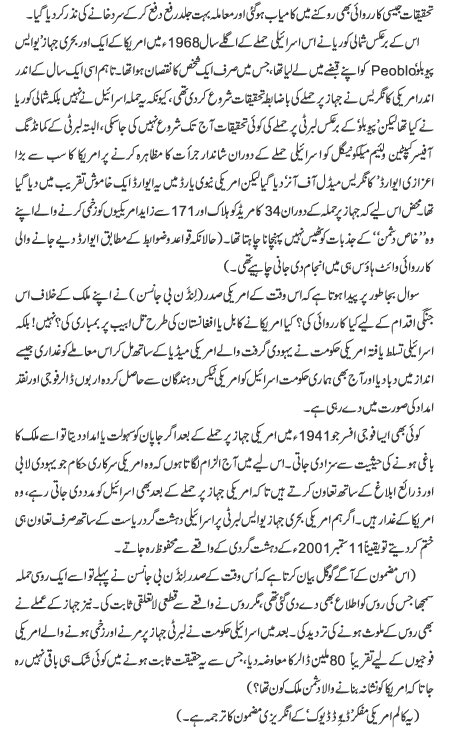 تحقیقات جیسی کارروائی بھی روکنے میں کامیاب ہوگئی اور معاملہ بہت جلد رفع دفع کرکے سرد خانے کی نذر کردیا گیا۔
اس کے برعکس شمالی کوریا نے اس اسرائیلی حملے کے اگلے سال 1968ء میں امریکا کے ایک اور بحری جہاز ’یوایس
پیوبلو‘ Peoblo کو اپنے قبضے میں لے لیا تھا، جس میں صرف ایک شخص کا نقصان ہوا تھا۔ تاہم اسی ایک سال کے اندر
اندر امریکی کانگریس نے جہاز پر حملے کی باضابطہ تحقیقات شروع کردی تھی، کیونکہ یہ حملہ اسرائیل نے نہیں بلکہ شمالی کوریا
نے کیا تھا لیکن ’پیوبلو‘ کے برعکس لبرٹی پر حملے کی کوئی تحقیقات آج تک شروع نہیں کی جاسکی، البتہ لبرٹی کے کمانڈنگ
آفیسر کیپٹین ولیم میکلو نیگل کو اسرائیلی حملے کے دوران شاندار جرأت کا مظاہرہ کرنے پر امریکا کا سب سے بڑا
اعزازی ایوارڈ ’کانگریس میڈل آف آنر‘ دیا گیا لیکن امریکی نیوی یارڈ میں یہ ایوارڈ ایک خاموش تقریب میں دیا گیا
تھا۔ محض اس لیے کہ جہاز پر حملہ کے دوران 34 کا مریڈ کو ہلاک اور 171 سے زاید امریکیوں کو زخمی کرنے والے اپنے
وہ ’’خاص دشمن‘‘ کے جذبات کو ٹھیس نہیں پہنچانا چاہتا تھا۔ (حالانکہ قواعد و ضوابط کے مطابق ایوارڈ دیے جانے والی
کارروائی وائٹ ہاؤس ہی میں انجام دی جانی چاہیے تھی۔)
سوال بجا طور پر پیدا ہوتا ہے کہ اس وقت کے امریکی صدر (لِنڈن بی جانسن) نے اپنے ملک کے خلاف اس
جنگی اقدام کے لیے کیا کارروائی کی؟ کیا امریکا نے کابل یا افغانستان کی طرح تل ابیب پر بمباری کی؟ نہیں! بلکہ
اسرائیلی تسلط یافتہ امریکی حکومت نے یہودی گرفت والے امریکی میڈیا کے ساتھ مل کر اس معاملے کو غداری جیسے
انداز میں دبا دیا اور آج بھی ہماری حکومت اسرائیل کو امریکی ٹیکس دہندگان سے حاصل کردہ اربوں ڈالر فوجی اور نقد
امداد کی صورت میں دے رہی ہے۔
کوئی بھی ایسا فوجی افسر جو 1941ء میں امریکی جہاز پر حملے کے بعد اگر جاپان کو سہولت یا امداد دیتا تو اسے ملک کا
باغی ہونے کی حیثیت سے سزا دی جاتی۔ اس لیے میں آج الزام لگاتا ہوں کہ وہ امریکی سرکاری حکام جو یہودی لابی
اور ذرائع ابلاغ کے ساتھ تعاون کرتے ہیں تاکہ امریکی جہاز پر حملے کے بعد بھی اسرائیل کو مدد دی جاتی رہے، وہ
امریکا کے غدار ہیں۔ اگر ہم امریکی بحری جہاز یوایس لبرٹی پر اسرائیلی دہشت گرد ریاست کے ساتھ صرف تعاون ہی
ختم کردیتے تو یقیناً 11 ستمبر 2001ء کے دہشت گردی کے واقعے سے محفوظ رہ جاتے۔
(اس مضمون کے آگے گوگل بیان کرتا ہے کہ اُس وقت کے صدر لِنڈن بی جانسن نے پہلے تو اسے ایک روسی حملہ
سمجھا جس کی روس کو اطلاع بھی دے دی گئی تھی، مگر روس نے واقعے سے قطعی لاتعلقی ثابت کی۔ نیز جہاز کے عملے نے
بھی روس کے ملوث ہونے کی تردید کی۔ بعد میں اسرائیلی حکومت نے لبرٹی جہاز پر مرنے اور زخمی ہونے والے امریکی
فوجیوں کے لیے تقریباً 80 ملین ڈالر کا معاوضہ دیا، جس سے یہ حقیقت ثابت ہونے میں کوئی شک ہی باقی نہیں رہ
جاتا کہ امریکا کو نشانہ بنانے والا دشمن ملک کون تھا؟)
(یہ کالم امریکی مفکر ’ڈیوڈ ڈیوک‘ کے انگریزی مضمون کا ترجمہ ہے۔)